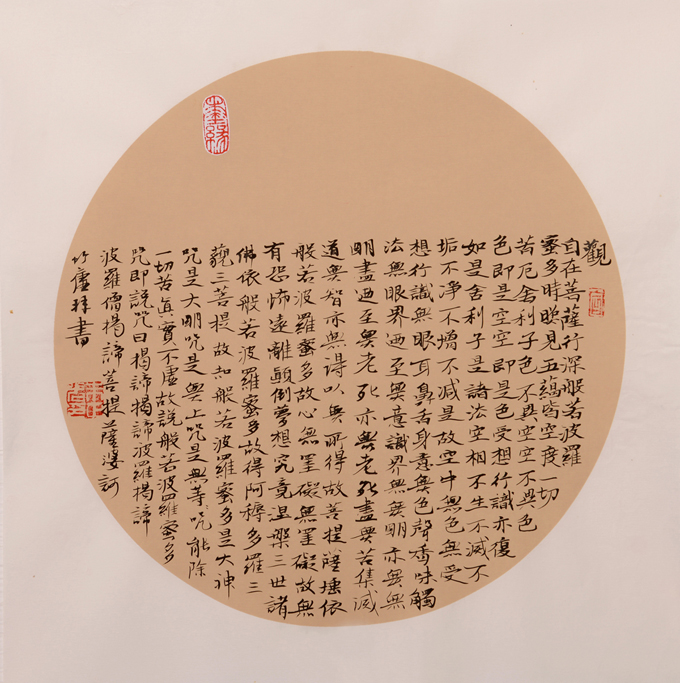 觀
自在菩薩行深般若波羅
蜜多時照見五蘊皆空度一切
苦厄舍利子色不異空空不異色
色即是空空即是色受想行識亦復
如是舍利子是諸法空相不生不滅不
垢不淨不增不減是故空中無色無受
想行識無眼耳鼻舌身意無色聲香味觸
法無眼界迺至無意識界無無明亦無無
明盡迺至無老死亦無老死盡無苦集滅
道無智亦無得以無所得故菩提薩埵依
般若波羅蜜多故心無罣礙無罣礙故無
有恐怖遠離顛倒夢想究竟涅槃三世諸
佛依般若波羅蜜多故得阿耨多羅三
藐三菩提故知般若波羅蜜多是大神
咒是大明咒是無上咒是無等咒能除
一切苦真實不虛故說般若波羅蜜多
咒即說咒曰揭諦揭諦波羅揭諦
波羅僧揭諦菩提薩婆訶
竹廬拜書
墨緣